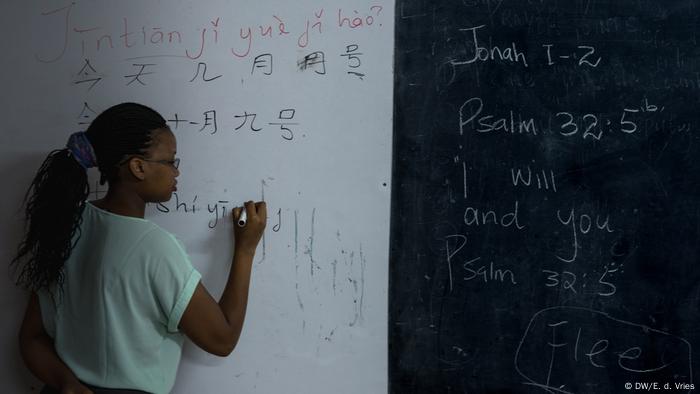 Jīntiān jǐ yuè jǐ hào?
今天几月号
十一月九号.
shí yī
Jonah 1-2
Psalm 32:5b.
I will
and you
Psalm 32:5
Flee
© DW/E. d. Vries